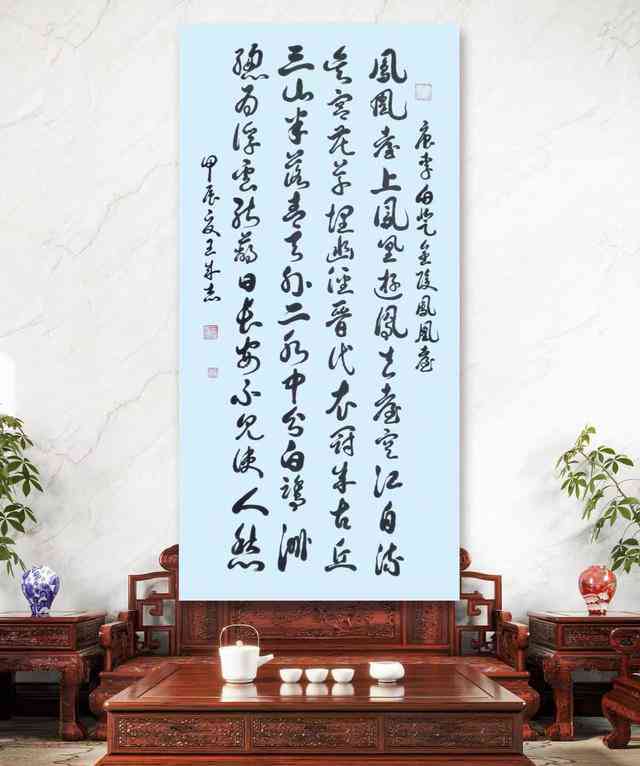 唐李白登金陵鳳凰臺
鳳凰臺上鳳凰遊鳳去臺空江自流
吳宮花草埋幽徑晉代衣冠成古丘
三山半落青天外二水中分白鷺洲
總為浮雲能蔽日長安不見使人愁
甲辰夏王成志